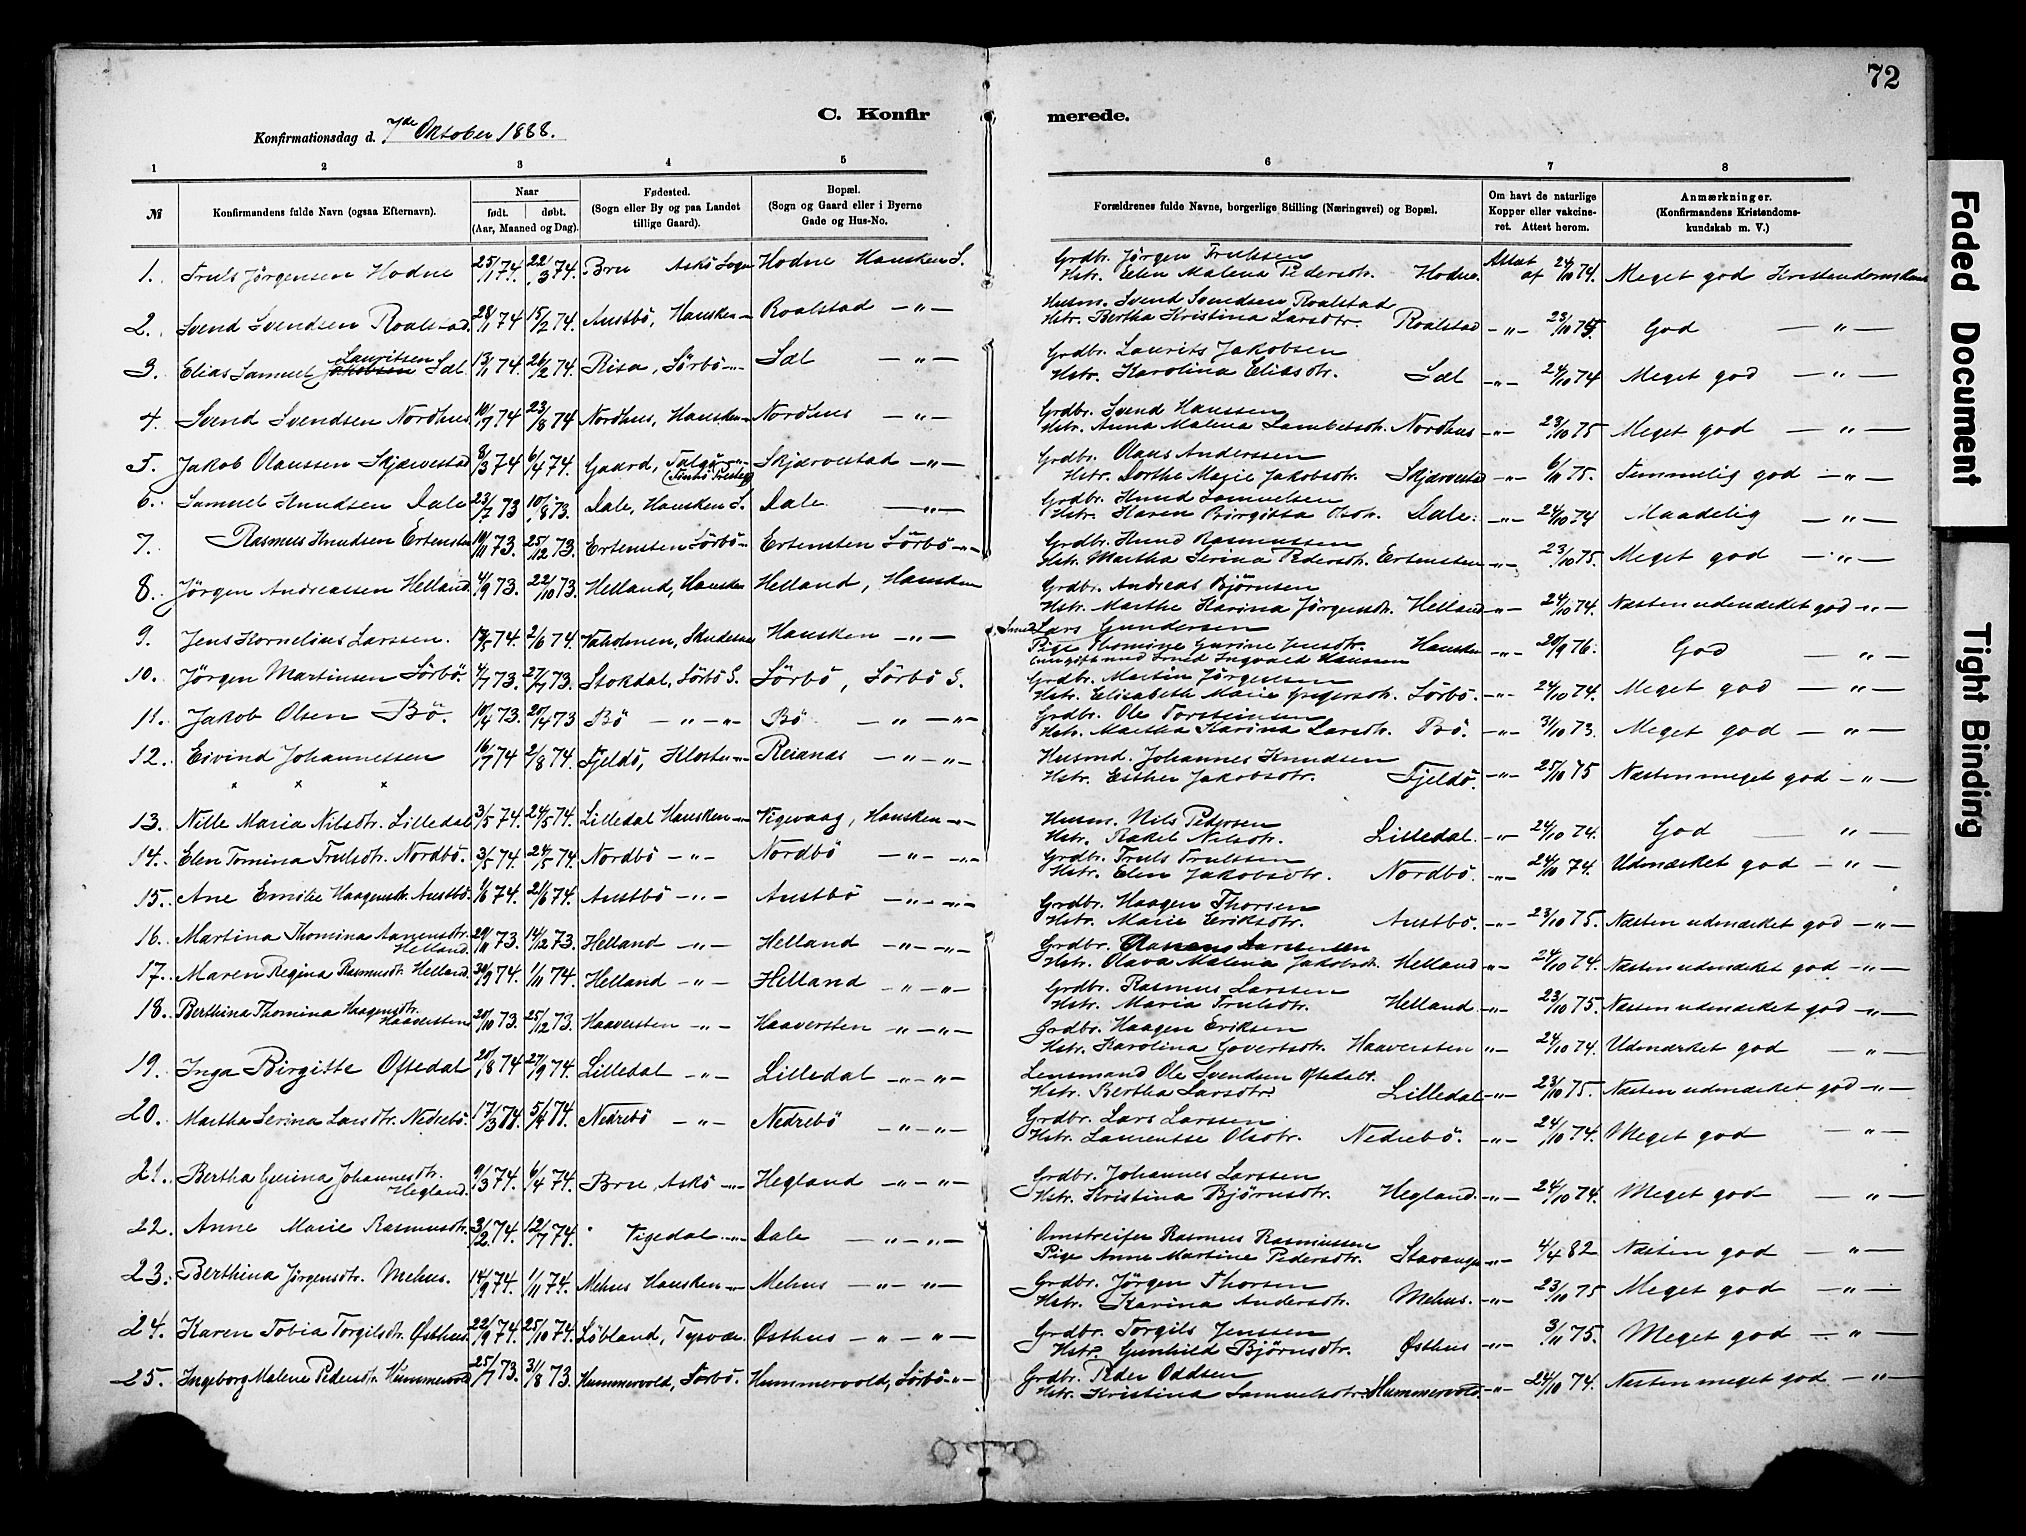 72
C. Konfir merede.
Konfirmationsdag d. 7de Oktober 1888.
1 2 3 4 5 6 7 8
№ Konfirmandens fulde Navn (ogsaa Efternavn). Naar født. døbt. (Aar, Maaned og Dag). Fødested. (Sogn eller By og paa Landet tillige Gaard). Bopæl. (Sogn og Gaard eller i Byerne Gade og Hus-No. Forældrenes fulde Navne, borgerlige Stilling (Næringsvei) og Bopæl. Om havt de naturlige Kopper eller vakcineret. Attest herom. Anmærkninger. (Konfirmandens Kristendomskundskab m. V.)
1. Truls Jörgensen Hodne 25/1 74. 22/3 74. Bru Askö Sogn Hodne Hausken S. Grdbr. Jörgen Trulssen
Hstr. Elen Malena Pedersdtr. Hodne. Attest af 24/10 74. Meget god Kristendomskundsk
2. Svend Svendsen Roalstad 28/1 74 15/2 74. Austbö, Hausken -"- Roalstad -"- Husm. Svend Svendsen Roalstad
Hstr. Bertha Kristina Larsdtr. Roalstad -"- 23/10 75. God -"-
3. Elias Samuel Jakobsen Lauritsen Sæl 13/1 74. 26/2 74. Risa, Sörbö -"- Sæl -"- Grdbr. Laurits Jakobsen
Hstr. Karolina Eliasdtr. Sæl -"- 24/10 74 Meget god -"-
4. Svend Svendsen Nordhus 10/7 74 23/8 74 Nordhus, Hausken -"- Nordhus -"- Grdbr. Svend Hanssen
Hstr. Anna Malena Lambetsdtr. Nordhus -"- 23/10 75 Meget god -"-
5. Jakob Olaussen Skjærvestad 8/3 74 6/4 74. Gaard, Talgö -"- (Finnö Prestegj) Skjærvestad -"- Grdbr. Olaus Anderssen
Hstr. Dorthe Marie Jakobsdtr. Skjærvestad -"- 6/11 75. Temmelig god -"-
6. Samuel Knudsen Dale 23/7 73 10/8 73. Dale, Hausken S. Dale -"- Grdbr. Knud Samuelsen
Hstr. Karen Birgitta Olsdtr. Dale. -"- 24/10 74 Maadelig -"-
7. Rasmus Knudsen Ertensten 10/11 73. 25/12 73. Ertensten Sörbö -"- Ertensten Sörbö -"- Grdbr. Knud Rasmussen
Hstr. Martha Serina Pedersdtr. Ertensten -"- 23/10 75. Meget god -"-
8. Jörgen Andreassen Helland 4/9 73. 22/10 73. Helland, Hausken Helland, Hausken Grdbr. Andreas Björnsen
Hstr. Marthe Karina Jörgensdtr. Helland -"- 24/10 74. Næsten udmærket god -"-
9. Jens Kornelius Larssen. 2/6 74 Vaholmen, Skudesnes Hausken -"- Smed Lars Gundersen
Pige Thomine Gurine Jensdtr. Hausken -"- 20/9 76. God -"-
(nu gift med Smed Ingvald Hanssen
10. Jörgen Martinsen Sörbö. 4/7 73. 27/7 73. Stokdal, Sörbö S. Sörbö, Sörbö S. Grdbr. Martin Jörgensen
Hstr. Elisabeth Marie Gregersdtr. Sörbö. -"- 24/10 74. Meget god -"-
11. Jakob Olsen Bö. 10/4 73. 20/4 73 Bö -"- -"- Bö -"- -"- Grdbr. Ole Torsteinsen
Hstr. Martha Karina Larsdtr. Bö. -"- 31/10 73. Meget god -"-
12. Eivind Johannessen 16/7 74 2/8 74. Fjeldö, Kloster -"- Reianæs -"- -"- Husmd. Johannes Knudsen
Hstr. Esther Jakobsdtr. Fjeldö. -"- 25/10 75 Næsten meget god -"-
13. Nille Maria Nilsdtr. Lilledal 3/5 74. 24/5 74. Lilledal Hausken -"- Vigevaag, Hausken -"- Husm. Nils Pedersen
Hstr. Rakel Nilsdtr. Lilledal. -"- 24/10 74. God -"-
14. Elen Tomina Trulsdtr. Nordbö. 3/5 74. 24/5 74. Nordbö -"- Nordbö -"- -"- Grdbr. Truls Trulssen
Hstr. Elen Jakobsdtr. Nordbö. -"- 24/10 74. Udmærket god -"-
15. Ane Emilie Haagensdtr. Austbö. 74. 21/6 74. Austbö -"- Austbö -"- -"- Grdbr. Haagen Thorsen
Hstr. Marie Eriksdtr. Austbö. -"- 23/10 75. Næsten udmærket god -"-
16. Martina Thomina Aanensdtr. Helland. 20/11 73. 14/12 73. Helland -"- Helland -"- -"- Grdbr. Larssen
Hstr. Olava Malena Jakobsdtr. Helland -"- 24/10 74. Næsten udmærket god -"-
17. Maren Regina Rasmusdtr. Helland. 30/9 74. 1/11 74. Helland -"- Helland -"- -"- Grdbr. Rasmus Larssen
Hstr. Maria Trulsdtr. Helland -"- 23/10 75. Næsten udmærket god -"-
18. Berthina Thomina Haagensdtr. Haaversten 20/10 73. 25/12 73. Haaversten -"- Haaversten -"- -"- Grdbr. Haagen Eriksen
Hstr. Karolina Govertsdtr. Haaversten -"- 24/10 74. Udmærket god -"-
19. Inga Birgitte Oftedal 20/8 74 27/9 74. Lilledal -"- Lilledal -"- -"- Lensmand Ole Svendsen Oftedal.
Hstr. Bertha Larsdtr. Lilledal -"- 23/10 75. Næsten udmærket god -"-
20. Martha Serina Larsdtr. Nedrebö. 17/3 74. 5/4 74. Nedrebö -"- Nedrebö -"- -"- Grdbr. Lars Larssen
Hstr. Laurentse Olsdtr. Nedrebö. -"- 24/10 74. Meget god -"-
21. Bertha Gurina Johannesdtr. Hegland. 9/3 74. 6/4 74. Bru, Askö -"- Hegland -"- -"- Grdbr. Johannes Larssen
Hstr. Kristina Björnsdtr. Hegland. -"- 24/10 74. Meget god -"-
22. Anne Marie Rasmusdtr. 3/2 74. 12/7 74. Vigedal -"- Dale -"- -"- Omstreifer Rasmus Rasmussen
Pige Anne Martine Pedersdtr. Stavanger -"- 4/4 82 Næsten god -"-
23. Berthina Jörgensdtr. Mehus. 14/9 74. 1/11 74. Mehus Hausken -"- Mehus -"- -"- Grdbr. Jörgen Thorsen
Hstr. Karina Andersdtr. Mehus. -"- 23/10 75 Meget god -"-
24. Karen Tobia Torgilsdtr. Østhus. 22/9 74. 25/10 74. Løbland, Tysvær. Østhus -"- -"- Grdbr. Torgils Jenssen
Hstr. Gunhild Björnsdtr. Østhus -"- 3/11 75. Meget god -"-
25. Ingeborg Malene Pedersdtr. Hummervold 25/7 73. 31/8 73. Hummervold, Sörbö. Hummervold, Sörbö -"- Grdbr. Peder Oddsen
Hstr. Kristina Samuelsdtr. Hummervold. -"- 24/10 74. Næsten meget god -"-
Faded Document
Tight Binding